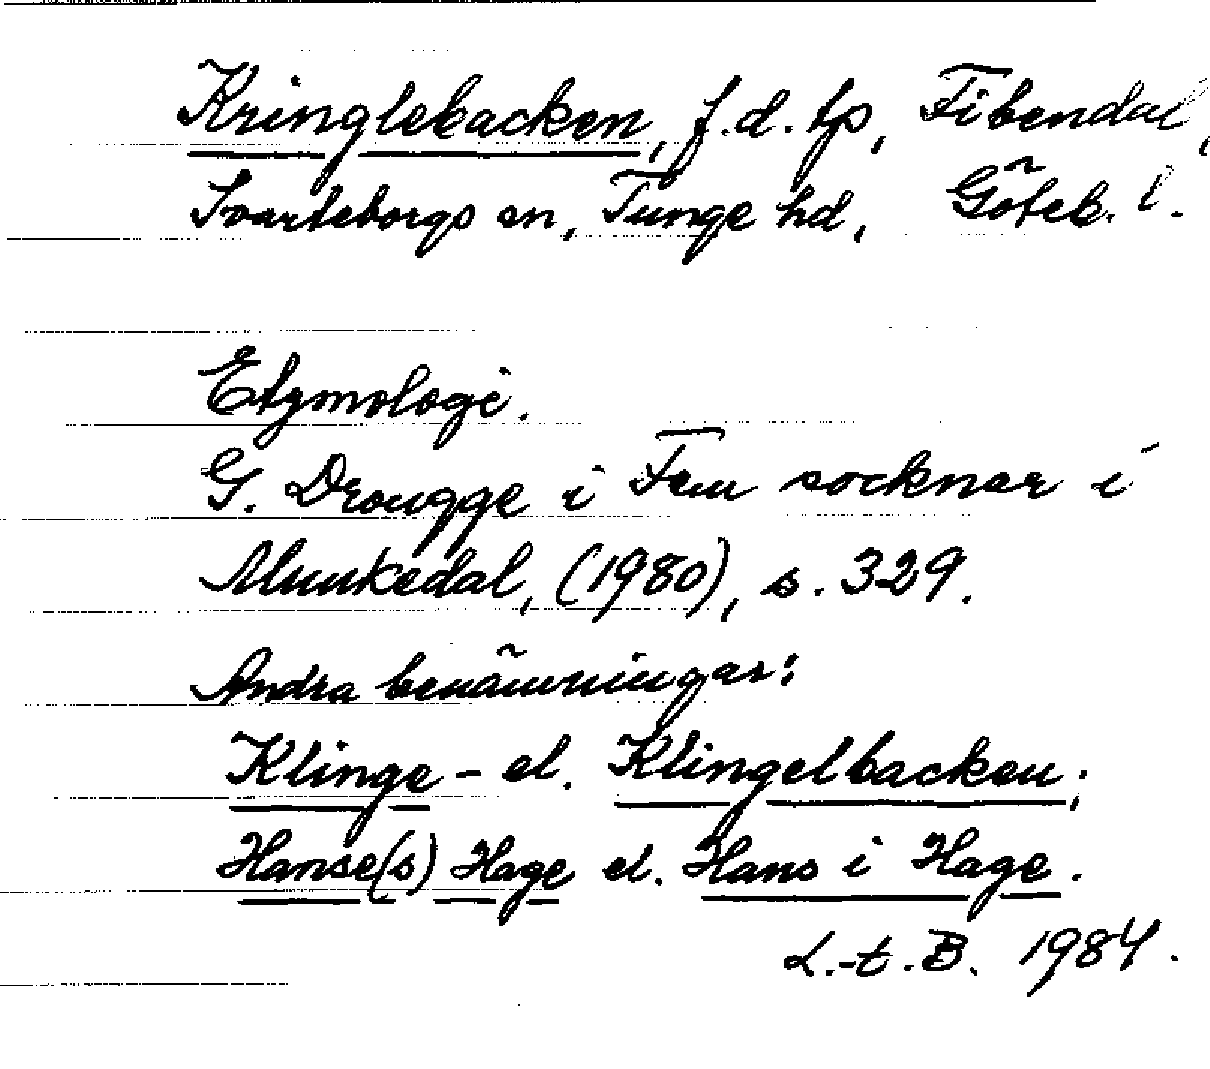 Kringlebacken, f.d. tp, Fibendal,
Svarteborgs sn, Tunge hd, Göteb. l.
Etymologi.
G. Drougge i Fem socknar i
Munkedal, (1980), s. 329.
Andra benämningar:
Klinge- el. Klingelbacken;
Hanse(s) Hage el. Hans i Hage.
L.-t. B. 1984.